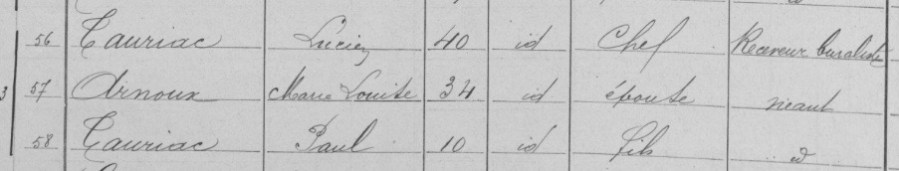 56 Tauriac Lucien 40 id Chef Receveur buraliste
3 57 Arnoux Marie Louise 34 id épouse néant
58 Tauriac Paul 10 id fils id